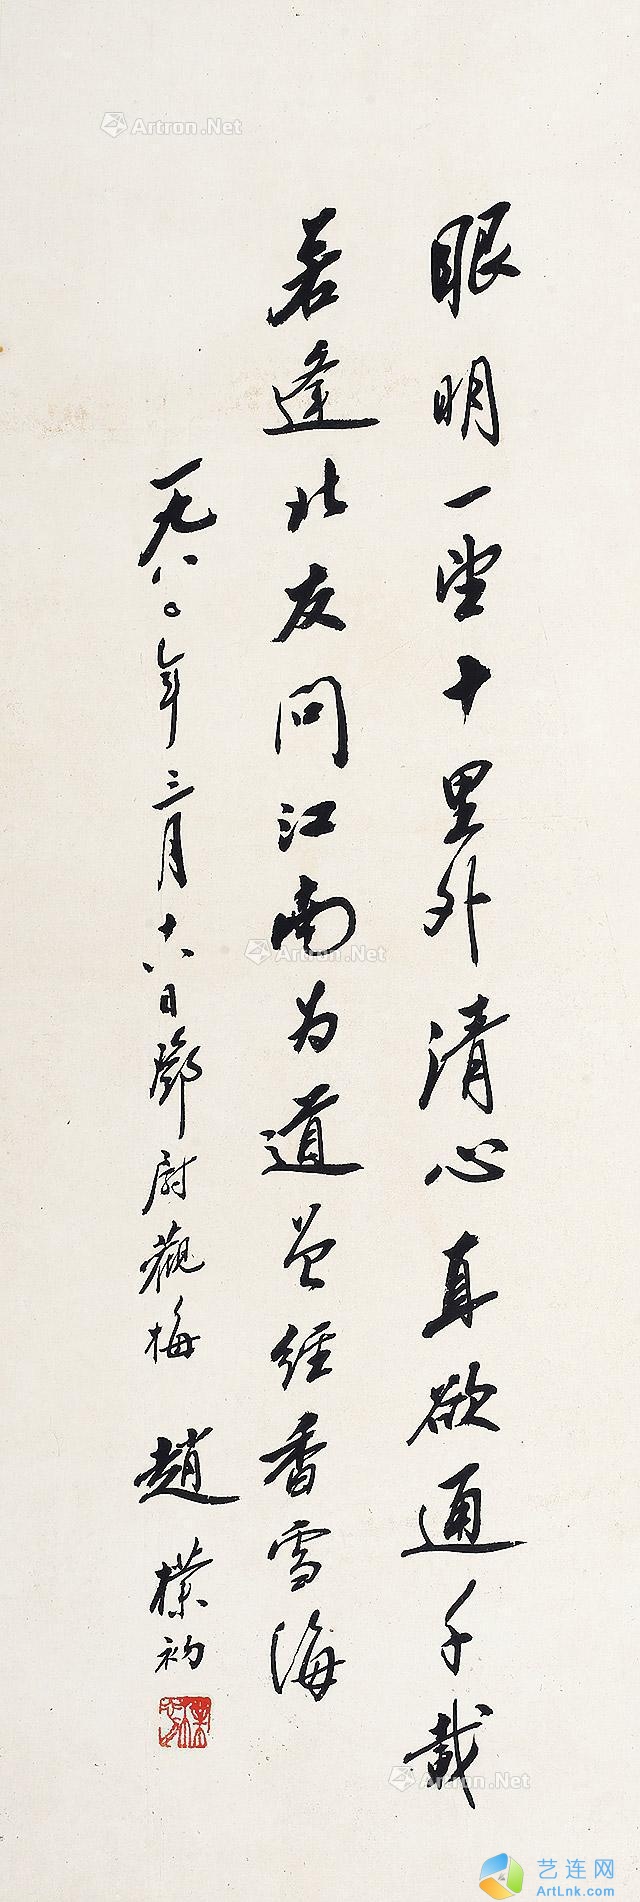 眼明一望十里外清心真欲通千载
若逢北友问江南为道曾经香雪海
一九八〇年三月十六日鄧尉觀梅 趙樸初
Artron.Net
Artron.Net
Artron.Net
艺连网
ArtLnk.com